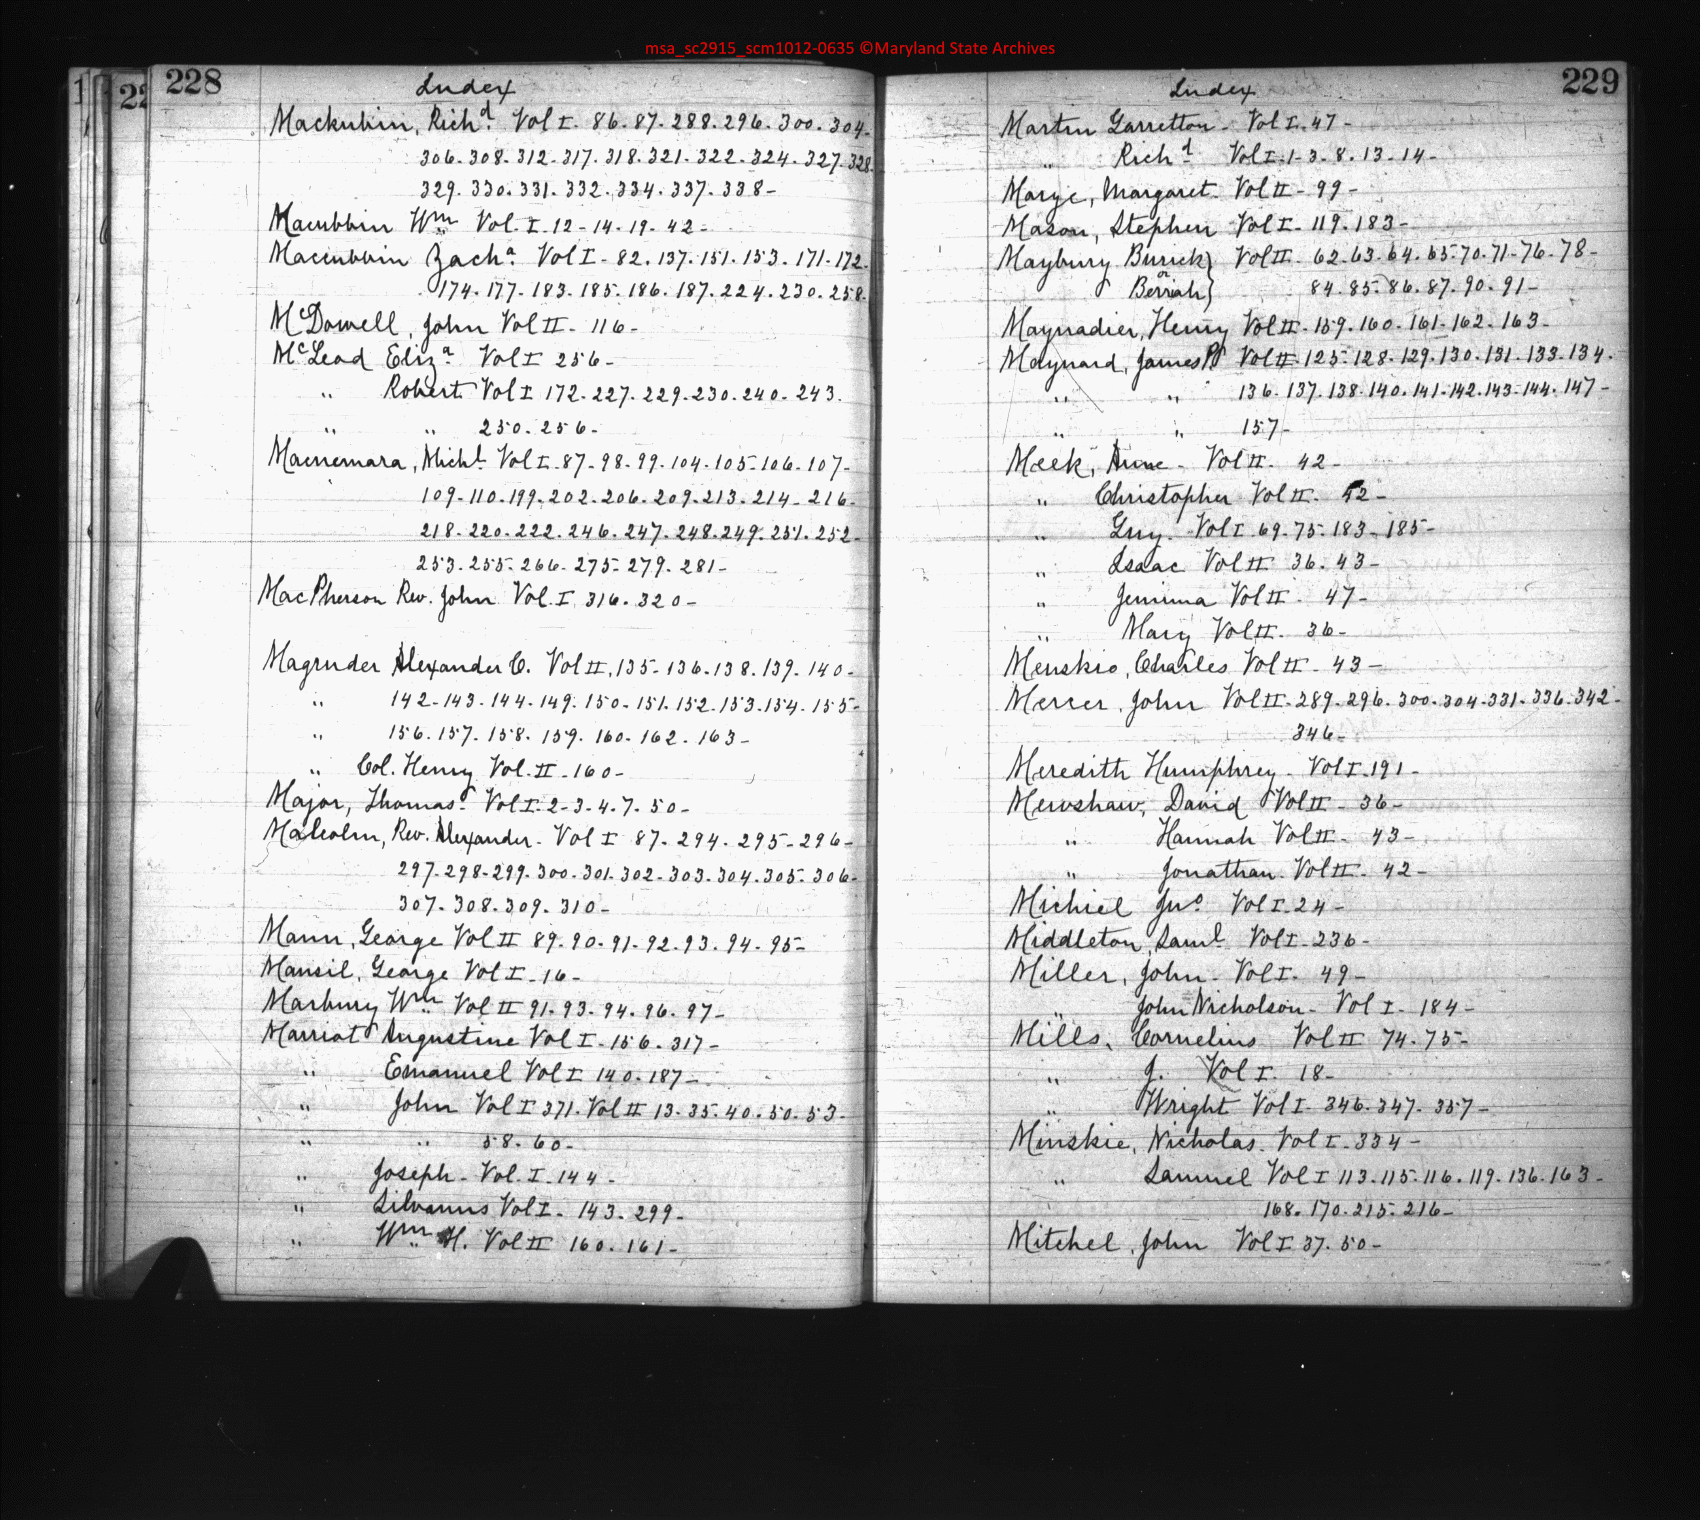 msa_sc2915_scm1012-0635 ©Maryland State Archives
228
Index
Mackubin, Richd. Vol I. 86-87-288-296-300-304-
306-308-312-317-318-321-322-324-327-328-
329-330-331-332-334-337-338-
Maccubbin Wm Vol. I-12-14-19-42-
Maccubbin Zacha. Vol I-82-137-151-153-171-172-
174-177-183-185-186-187-224-230-258-
McDowell, John Vol II-116-
McLeod Eliza Vol I 256-
" Robert Vol I 172-227-229-230-240-243.
" " 250-256-
Macnemara, Michl. Vol I-87-98-99-104-105-106-107-
109-110-199-202-206-209-213-214-216-
218-220-222-246-247-248-249-251-252-
253-255-266-275-279-281-
MacPherson Rev. John Vol. I 316-320-
Magruder Alexander C. Vol II, 135-136-138-139-140-
" 142-143-144-149-150-151-152-153-154-155-
" 156-157-158-159-160-162-163-
" Col. Henry Vol. II-160-
Major, Thomas Vol I-2-3-4-7-50-
Malcolm, Rev. Alexander- Vol I 87-294-295-296-
297-298-299-300-301-302-303-304-305-306-
307-308-309-310-
Mann, George Vol II 89-90-91-92-93-94-95-
Mansil, George Vol I-16-
Marbury Wm Vol II 91-93-94-96-97-
Marriot Augustine Vol I-156-317-
" Emanuel Vol I 140-187-
" John Vol I 371-Vol II 13-35-40-50-53-
" " 58-60-
" Joseph- Vol. I-144-
" Silvanus Vol I-143-299-
" Wm H. Vol II 160-161-
229
Index
Martin Garretton- Vol I-47-
" Richd Vol I-1-3-8-13-14-
Marye, Margaret Vol II-99-
Mason, Stephen Vol I-119-183-
Maybury Burick } Vol II-62-63-64-65-70-71-76-78-
or
Beriah } 84-85-86-87-90-91-
Maynadier, Henry Vol II-159-160-161-162-163-
Maynard, James P Vol II-125-128-129-130-131-133-134-
" " 136-137-138-140-141-142-143-144-147-
" " 157-
Meek, Anne- Vol II-42-
" Christopher Vol II-42-
" Guy- Vol I-69-75-183-185-
" Isaac Vol II 36-43-
" Jemima Vol II-47-
" Mary Vol II-36-
Menskio, Charles Vol II-43-
Mercer, John Vol II-289-296-300-304-331-336-342-
346-
Meredith Humphrey- Vol I-191-
Mewshaw, David Vol II-36-
" Hannah Vol II-43-
" Jonathan- Vol II-42-
Michiel Jno Vol I-24-
Middleton, Saml Vol I-236-
Miller, John- Vol I-49-
" John Nicholson- Vol I-184-
Mills, Cornelius Vol II 74-75-
" J. Vol I 18-
" Wright Vol I-346-347-357-
Minskie, Nicholas- Vol I-334-
" Samuel Vol I 113-115-116-119-136-163-
168-170-215-216-
Mitchel, John Vol I 37-50-